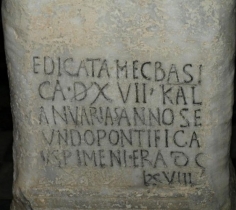 EDICATA·HEC·BASI
CA·D·XVII·KAL
ANVARIAS·ANNO·SE
VNDO·PONTIFICA
VS·PIMENI·ERA·DC
LXVIII